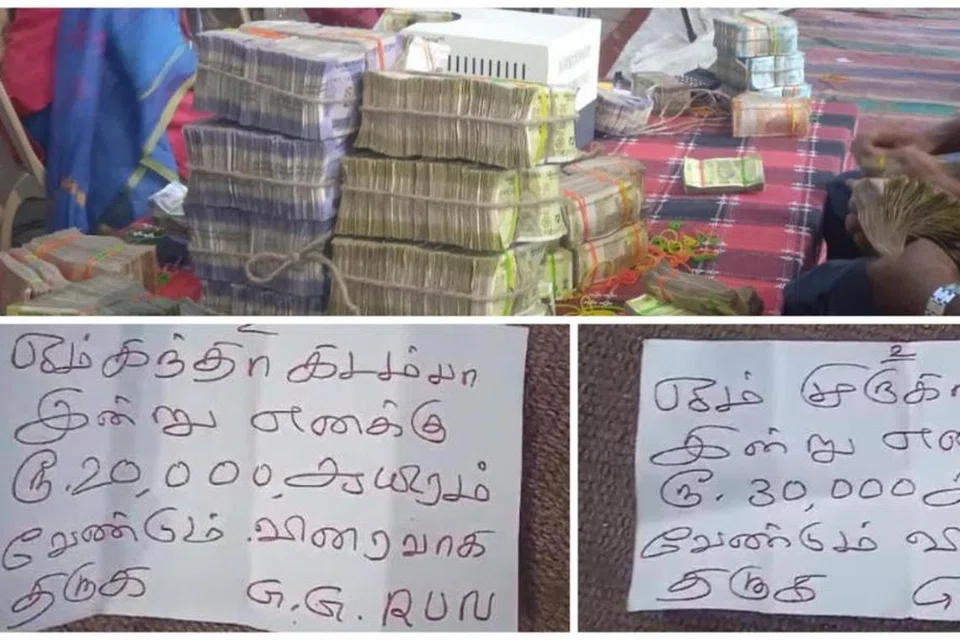 ஓம் கந்தா கடம்பா
இன்று எனக்கு
ரூ.20,000, ஆயிரம்
வேண்டும் .விரைவாக
தருக G.G. RUN
2
ஓம் முருகா
இன்று என
ரூ. 30,000 ஆ
வேண்டும் வி
தருக G